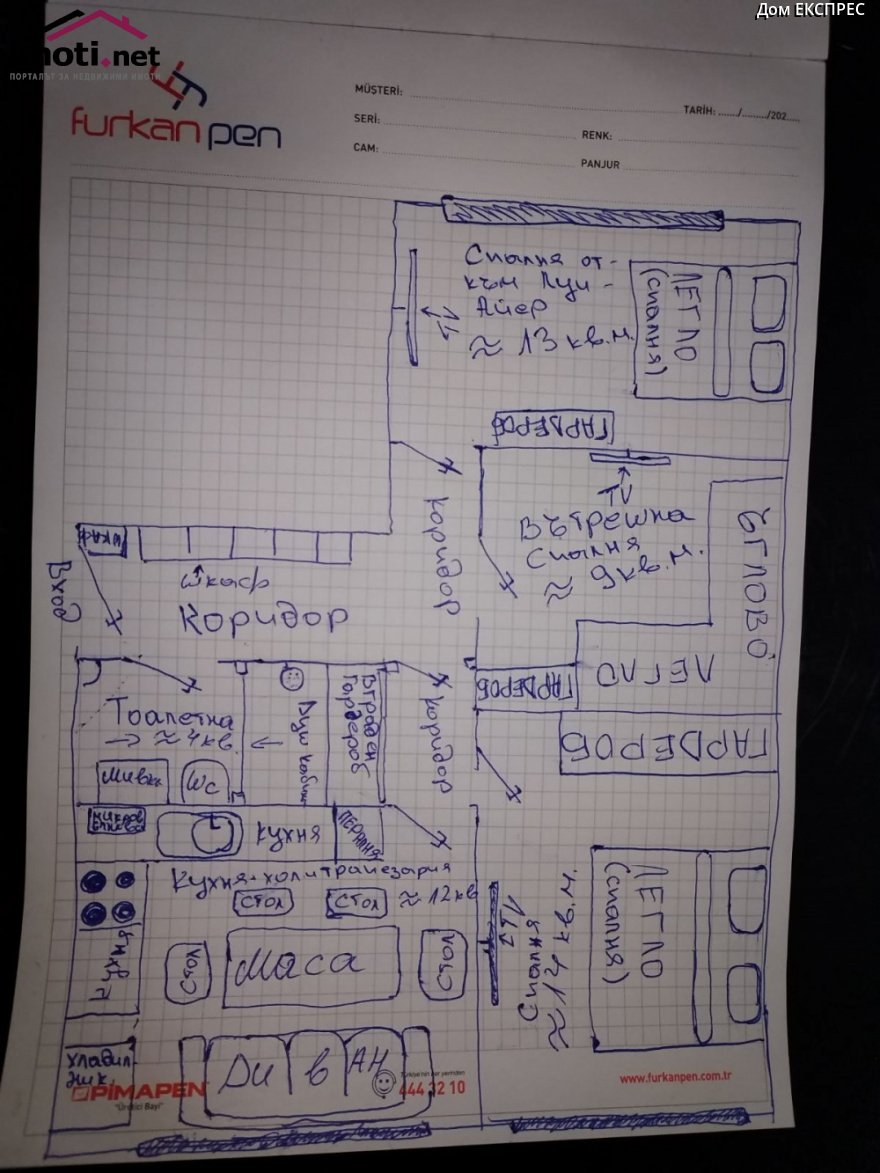 Дом ЕКСПРЕС
imoti.net
ПОРТАЛЪТ ЗА НЕДВИЖИМИ ИМОТИ
furkan pen
MÜŞTERİ:
TARİH: ....../........./202.....
SERİ:
RENK:
CAM:
PANJUR
Спалня от-
към Луи-
Айер
≈ 13 кв.м.
TV
ЛЕГЛО
(спалня)
ГАРДЕРОБ
TV
Вътрешна
Спалня
≈ 9 кв.м.
ЪГЛОВО
ЛЕГЛО
коридор
ШКАФ
шкаф
Вход
Коридор
Тоалетна
≈ 4 кв.
Мивка
WC
Душ кабина
Вграден
Гардероб
коридор
ГАРДЕРОБ
ГАРДЕРОБ
кухня
ПЕРАЛНЯ
Кухня+хол+трапезария
≈ 12 кв
СТОЛ
СТОЛ
СТОЛ
Маса
СТОЛ
кухня
хладил-
ник.
Ди в АН
TV
Спалня
≈ 12 кв.м.
ЛЕГЛО
(спалня)
PİMAPEN
"Üretici Bayi"
Türkiye'nin her yerinden
444 32 10
www.furkanpen.com.tr